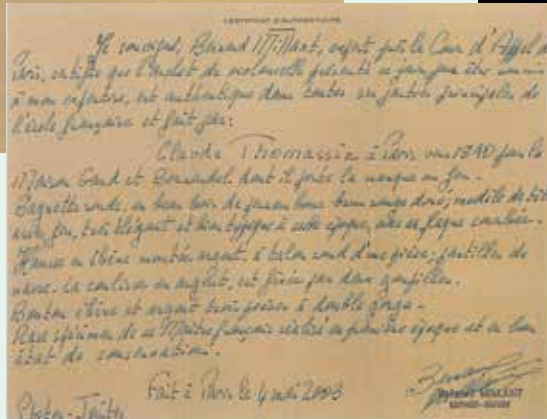 CERTIFICAT D'AUTHENTICITÉ
Je soussigné, Bernard Millant, expert près la Cour d'Appel de
Paris, certifie que l'archet de violoncelle présenté ce jour pour être soumis
à mon expertise, est authentique dans toutes ses parties principales de
l'école française et fait par:
Claude Thomassin à Paris vers 1890 pour la
Maison Gand et Bernardel dont il porte la marque au feu.
Baguette ronde, en beau bois de pernambouc brun rouge doré, modèle de tête
très élégant et bien typique à cette époque,
Hausse en ébène montée argent, à talon rond d'une pièce; pastilles de
nacre. La coulisse en argent, est fixée par deux goupilles.
Bouton ébène et argent trois pièces à double gorge.
Rare spécimen de ce Maître français réalisé en première époque et en bon
état de conservation.
Fait à Paris le 4 mai 2003
BERNARD MILLANT